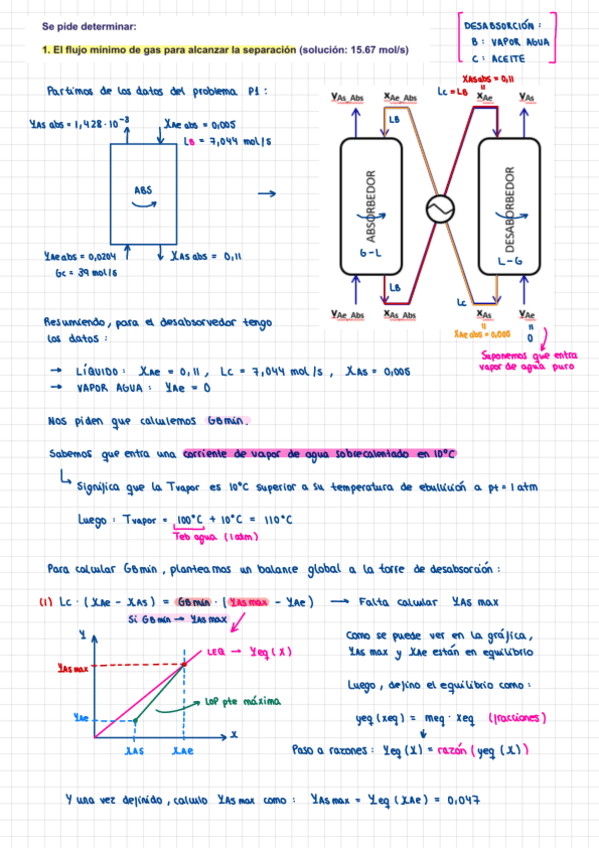 Se pide determinar:
1. El flujo mínimo de gas para alcanzar la separación (solución: 15.67 mol/s)
DESABSORCIÓN:
B: VAPOR AGUA
C: ACEITE
Partimos de los datos del problema P1:
YAS abs = 1,428·10⁻³
XAe abs = 0,005
LB = 7,044 mol/s
ABS
YAe abs = 0,0204
GC = 39 mol/s
XAS abs = 0,11
XAS abs = 0,11
LC = LB
YAs Abs
XAe Abs
XAe
YAs
LB
ABSORBEDOR
G-L
DESABORBEDOR
L-G
LB
LC
YAe Abs
XAs Abs
XAs
YAe
XAe abs = 0,005
0
Suponemos que entra
vapor de agua puro
Resumiendo, para el desabsorvedor tengo
los datos:
→ LÍQUIDO: XAe = 0,11, LC = 7,044 mol/s, XAS = 0,005
→ VAPOR AGUA: YAe = 0
Nos piden que calculemos GBmin.
Sabemos que entra una corriente de vapor de agua sobrecalentado en 10°C
Significa que la Tvapor es 10°C superior a su temperatura de ebullición a pt = 1 atm
Luego: Tvapor = 100°C + 10°C = 110°C
Teb agua (1 atm)
Para calcular GBmin, planteamos un balance global a la torre de desabsorción:
(1) LC · (XAe - XAS) = GBmin · (YAS max - YAe) → Falta calcular YAS max
Si GBmin → YASmax
Y
LEQ → Yeq(X)
YASmax
LOP pte máxima
YAe
X
XAS
XAe
Como se puede ver en la gráfica,
YAS max y XAe están en equilibrio
Luego, defino el equilibrio como:
yeq (xeq) = meq · xeq (fracciones)
Paso a razones: Yeq (X) = razón (yeq (X))
Y una vez definido, calculo YAS max como: YAS max = Yeq (XAe) = 0,047